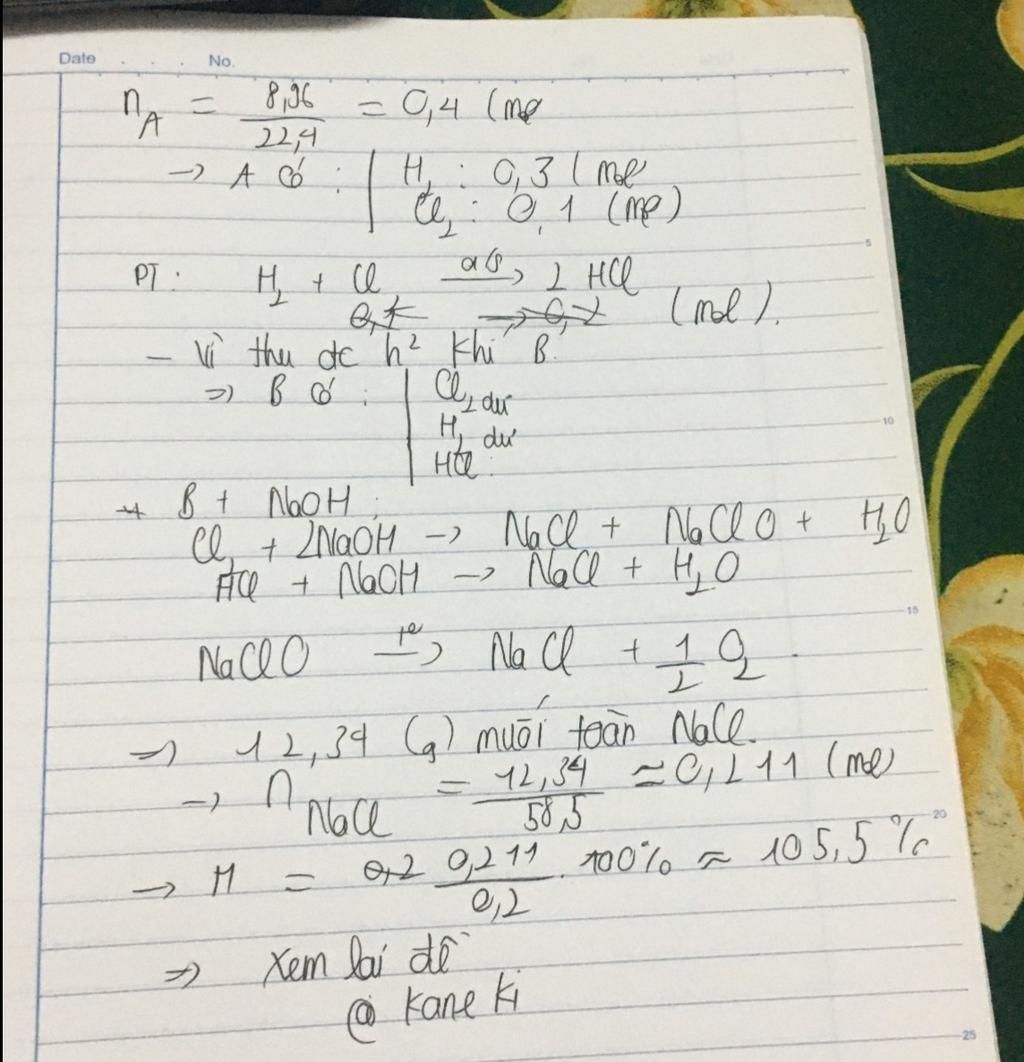 Date . . . No.
n_A = 8,96/22,4 = 0,4 (mol
→ A có : | H₂ : 0,3 ( mol
Cl₂ : 0,1 (mol)
5
PT: H₂ + Cl —as→ 2 HCl
(mol).
- Vì thu đc h² khí B.
⇒ B có : | Cl₂ dư
H₂ dư
10
HCl :
→ B + NaOH :
Cl₂ + 2NaOH → NaCl + NaClO + H₂O
HCl + NaOH → NaCl + H₂O
15
NaClO —t°→ NaCl + 1/2 O₂.
⇒ 12,34 (g) muối toàn NaCl.
→ n_NaCl = 12,34/58,5 ≈ 0,211 (mol)
20
→ H = 0,2 0,211/0,2 . 100% ≈ 105,5 %
⇒ Xem lại đề
@ Kane ki
25